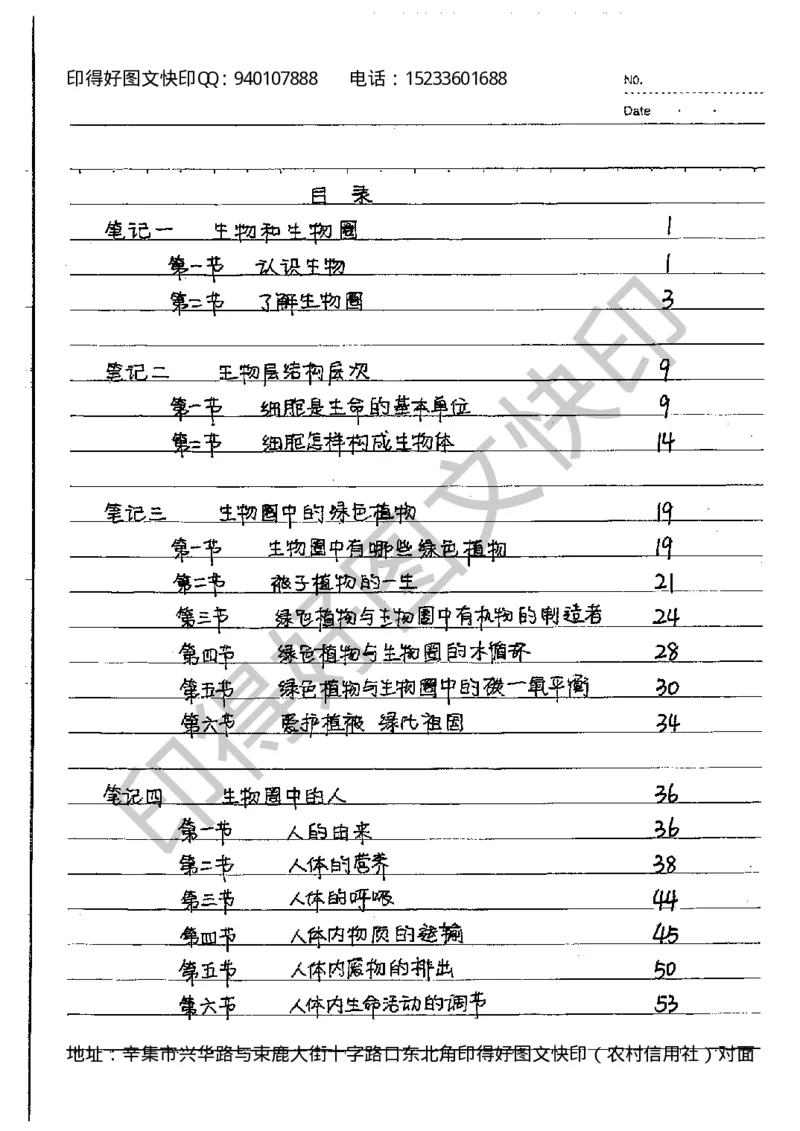 印得好图文快印QQ：940107888 电话：15233601688
NO.
Date
目 录
笔记一 生物和生物圈 1
第一节 认识生物 1
第二节 了解生物圈 3
笔记二 生物层结构层次 9
第一节 细胞是生命的基本单位 9
第二节 细胞怎样构成生物体 14
笔记三 生物圈中的绿色植物 19
第一节 生物圈中有哪些绿色植物 19
第二节 被子植物的一生 21
第三节 绿色植物与生物圈中有机物的制造者 24
第四节 绿色植物与生物圈的水循环 28
第五节 绿色植物与生物圈中的碳一氧平衡 30
第六节 爱护植被 绿化祖国 34
笔记四 生物圈中的人 36
第一节 人的由来 36
第二节 人体的营养 38
第三节 人体的呼吸 44
第四节 人体内物质的运输 45
第五节 人体内废物的排出 50
第六节 人体内生命活动的调节 53
地址：辛集市兴华路与束鹿大街十字路口东北角印得好图文快印（农村信用社）对面
印得好图文快印